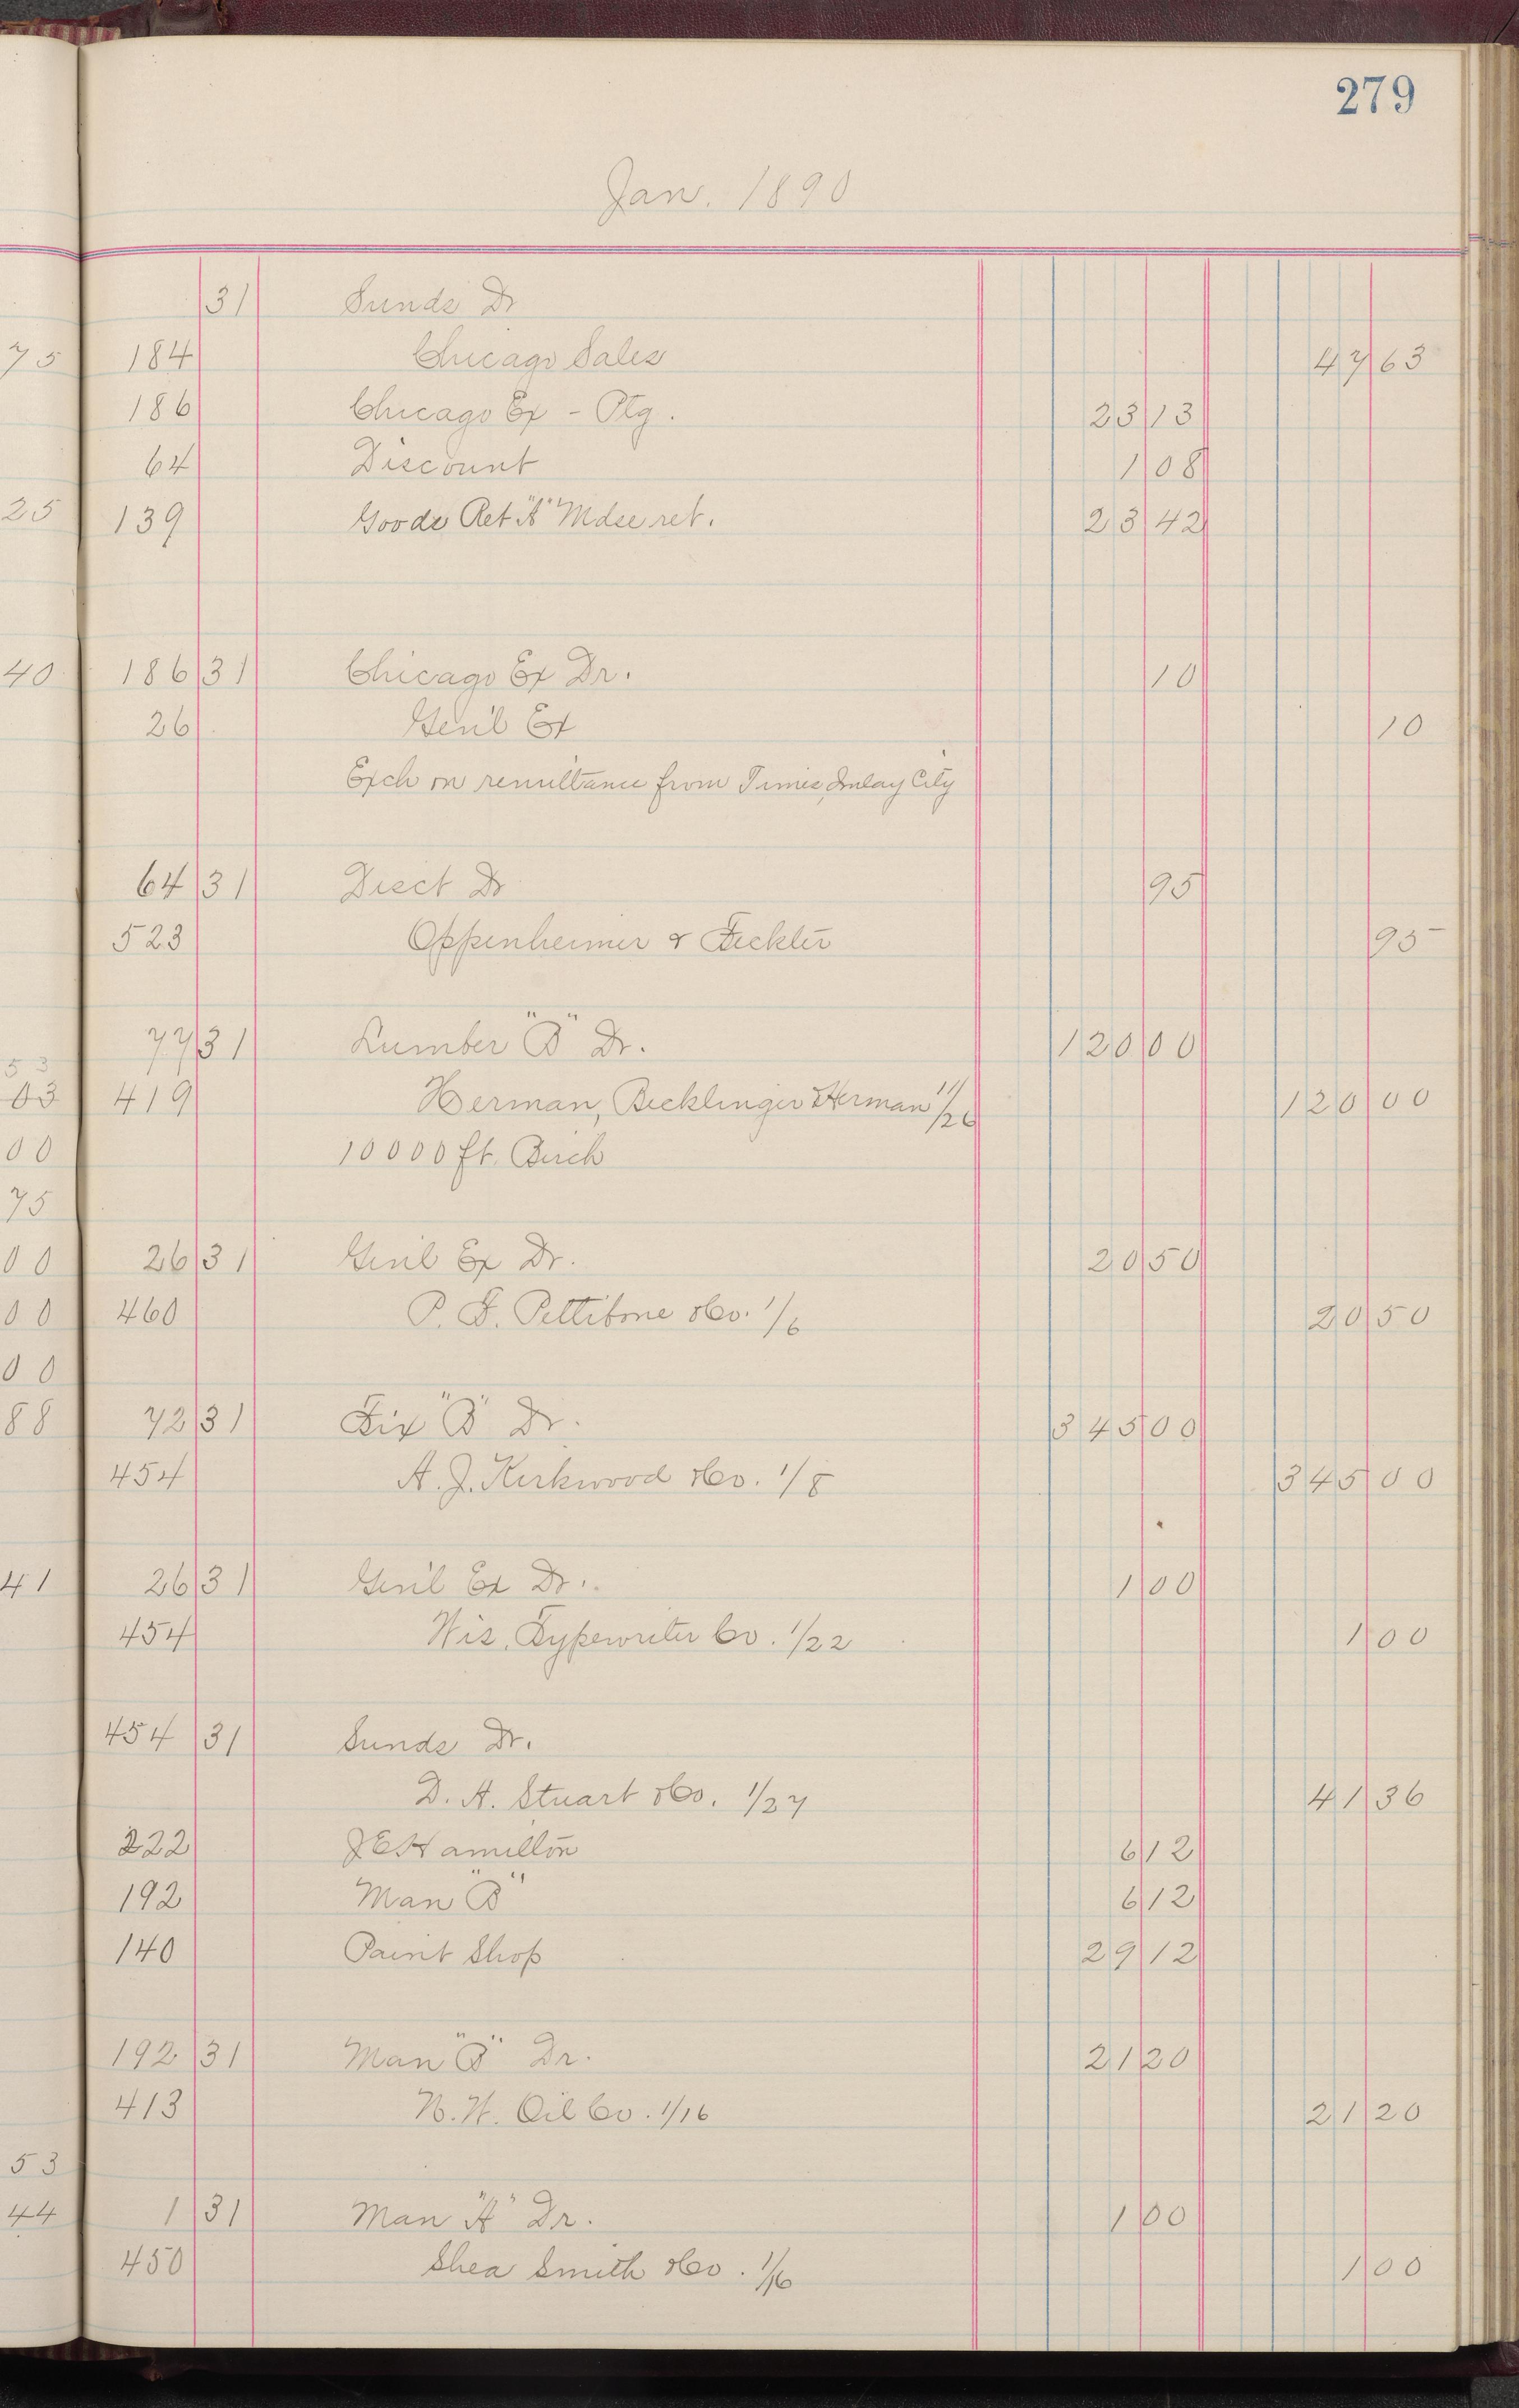 279
Jan. 1890
31 Sunds Dr
75 184 Chicago Sales 47 63
186 Chicago Ex - Ptg. 23 13
64 Discount 1 08
25 139 Goods Ret "A" Mdse ret. 23 42
40 186 31 Chicago Ex Dr. 10
26 Gen'l Ex 10
Exch on remittance from Times, Imlay City
64 31 Disct Dr 95
523 Oppenheimer & Feckler 95
77 31 Lumber "B" Dr. 120 00
53
03 419 Herman, Becklinger & Herman 11/26 120 00
00 10000 ft. Birch
75
00 26 31 Gen'l Ex Dr. 20 50
00 460 P. F. Pettibone & Co. 1/6 20 50
00
88 72 31 Fix "B" Dr. 345 00
454 A. J. Kirkwood & Co. 1/8 345 00
41 26 31 Gen'l Ex Dr. 1 00
454 Wis. Typewriter Co. 1/22 1 00
454 31 Sunds Dr.
D. A. Stuart & Co. 1/27 41 36
222 J E Hamilton 6 12
192 Man "B" 6 12
140 Paint Shop 29 12
192 31 Man "B" Dr. 21 20
413 N. W. Oil Co. 1/16 21 20
53
44 1 31 Man "A" Dr. 1 00
450 Shea Smith & Co. 1/16 1 00